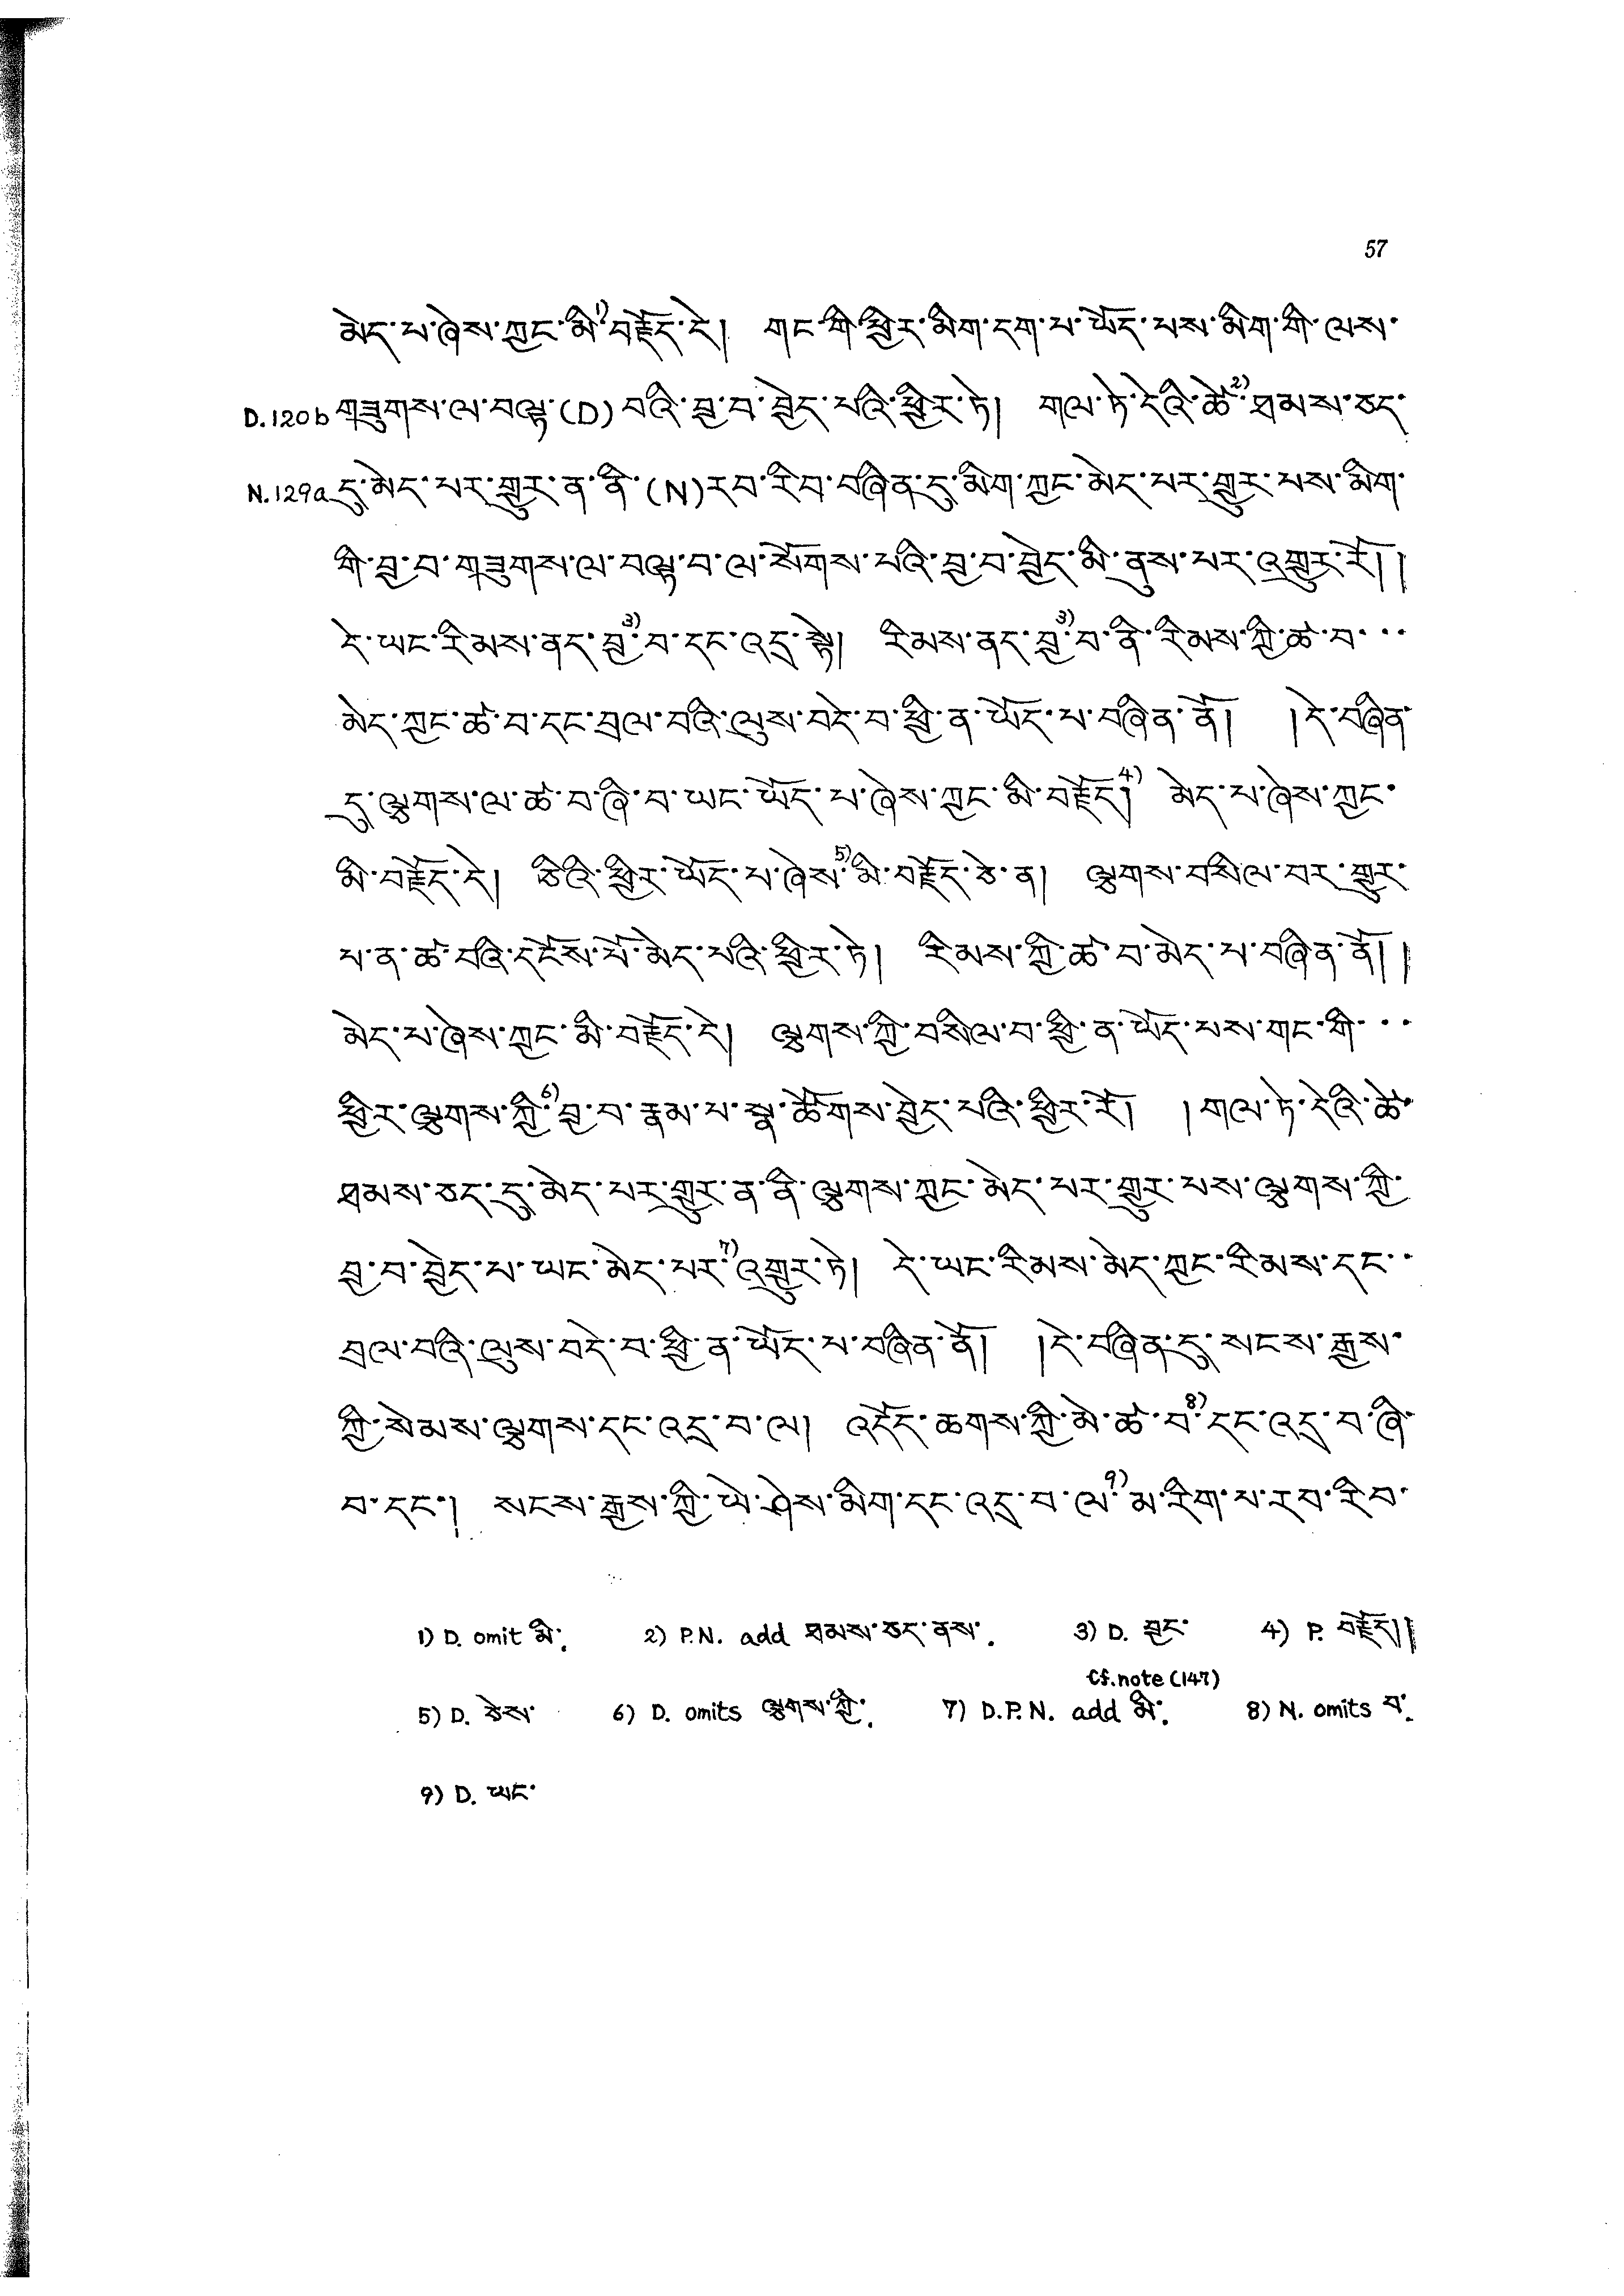 57
མེད་པ་ཞེས་ཀྱང་མི་1)བརྗོད་དེ། གང་གི་ཕྱིར་མིག་དག་པ་ཡོད་པས་མིག་གི་ལས་
D.120b གཟུགས་ལ་བལྟ་(D)བའི་བྱ་བ་བྱེད་པའི་ཕྱིར་ཏེ། གལ་ཏེ་དེའི་ཚེ་2)ཐམས་ཅད་
N.129a དུ་མེད་པར་གྱུར་ན་ནི་(N)རབ་རིབ་བཞིན་དུ་མིག་ཀྱང་མེད་པར་གྱུར་པས་མིག་
གི་བྱ་བ་གཟུགས་ལ་བལྟ་བ་ལ་སོགས་པའི་བྱ་བ་བྱེད་མི་ནུས་པར་འགྱུར་རོ།།
དེ་ཡང་རིམས་ནད་བྱ་3)བ་དང་འདྲ་སྟེ། རིམས་ནད་བྱ་3)བ་ནི་རིམས་ཀྱི་ཚ་བ་··
མེད་ཀྱང་ཚ་བ་དང་བྲལ་བའི་ལུས་བདེ་བ་ཕྱི་ན་ཡོད་པ་བཞིན་ནོ། །དེ་བཞིན་
དུ་ལྕགས་ལ་ཚ་བ་ཞི་བ་ཡང་ཡོད་པ་ཞེས་ཀྱང་མི་བརྗོད།4) མེད་པ་ཞེས་ཀྱང་
མི་བརྗོད་དེ། ཅིའི་ཕྱིར་ཡོད་པ་ཞེས་5)མི་བརྗོད་ཅེ་ན། ལྕགས་བསིལ་བར་གྱུར་
པ་ན་ཚ་བའི་དངོས་པོ་མེད་པའི་ཕྱིར་ཏེ། རིམས་ཀྱི་ཚ་བ་མེད་པ་བཞིན་ནོ།།
མེད་པ་ཞེས་ཀྱང་མི་བརྗོད་དེ། ལྕགས་ཀྱི་བསིལ་བ་ཕྱི་ན་ཡོད་པས་གང་གི་··
ཕྱིར་ལྕགས་ཀྱི་6)བྱ་བ་རྣམ་པ་སྣ་ཚོགས་བྱེད་པའི་ཕྱིར་རོ། །གལ་ཏེ་དེའི་ཚེ་
ཐམས་ཅད་དུ་མེད་པར་གྱུར་ན་ནི་ལྕགས་ཀྱང་མེད་པར་གྱུར་པས་ལྕགས་ཀྱི་
བྱ་བ་བྱེད་པ་ཡང་མེད་པར་7)འགྱུར་ཏེ། དེ་ཡང་རིམས་མེད་ཀྱང་རིམས་དང་·
བྲལ་བའི་ལུས་བདེ་བ་ཕྱི་ན་ཡོད་པ་བཞིན་ནོ། །དེ་བཞིན་དུ་སངས་རྒྱས་
ཀྱི་སེམས་ལྕགས་དང་འདྲ་བ་ལ། འདོད་ཆགས་ཀྱི་མེ་ཚ་བ་8)དང་འདྲ་བ་ཞི་
བ་དང་། སངས་རྒྱས་ཀྱི་ཡེ་ཤེས་མིག་དང་འདྲ་བ་ལ་9)མ་རིག་པ་རབ་རིབ་
1) D. omit མི་. 2) P.N. add ཐམས་ཅད་ནས་. 3) D. བྱང་ 4) P. བརྗོད།།
Cf.note (147)
5) D. ཅེས་ 6) D. omits ལྕགས་ཀྱི་. 7) D.P.N. add མི་. 8) N. omits བ་.
9) D. ཡང་